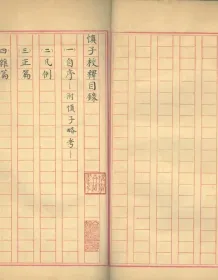 慎子校釋目錄
一自序—附慎子略考—
二凡例
三正篇
四雜篇